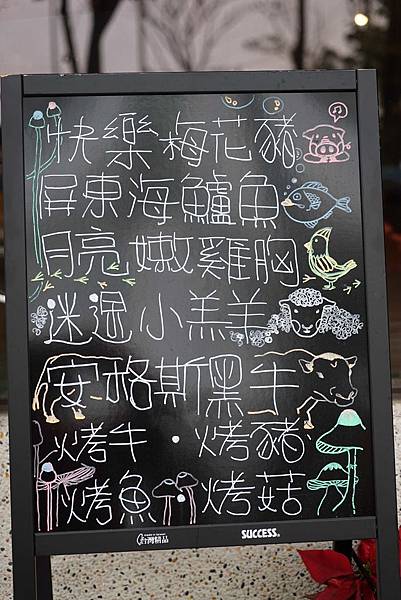 快樂梅花豬
屏東海鱸魚
月亮嫩雞胸
迷迵小羔羊
安格斯黑牛
烤牛·烤豬
烤魚·烤菇
台灣精品 SUCCESS.